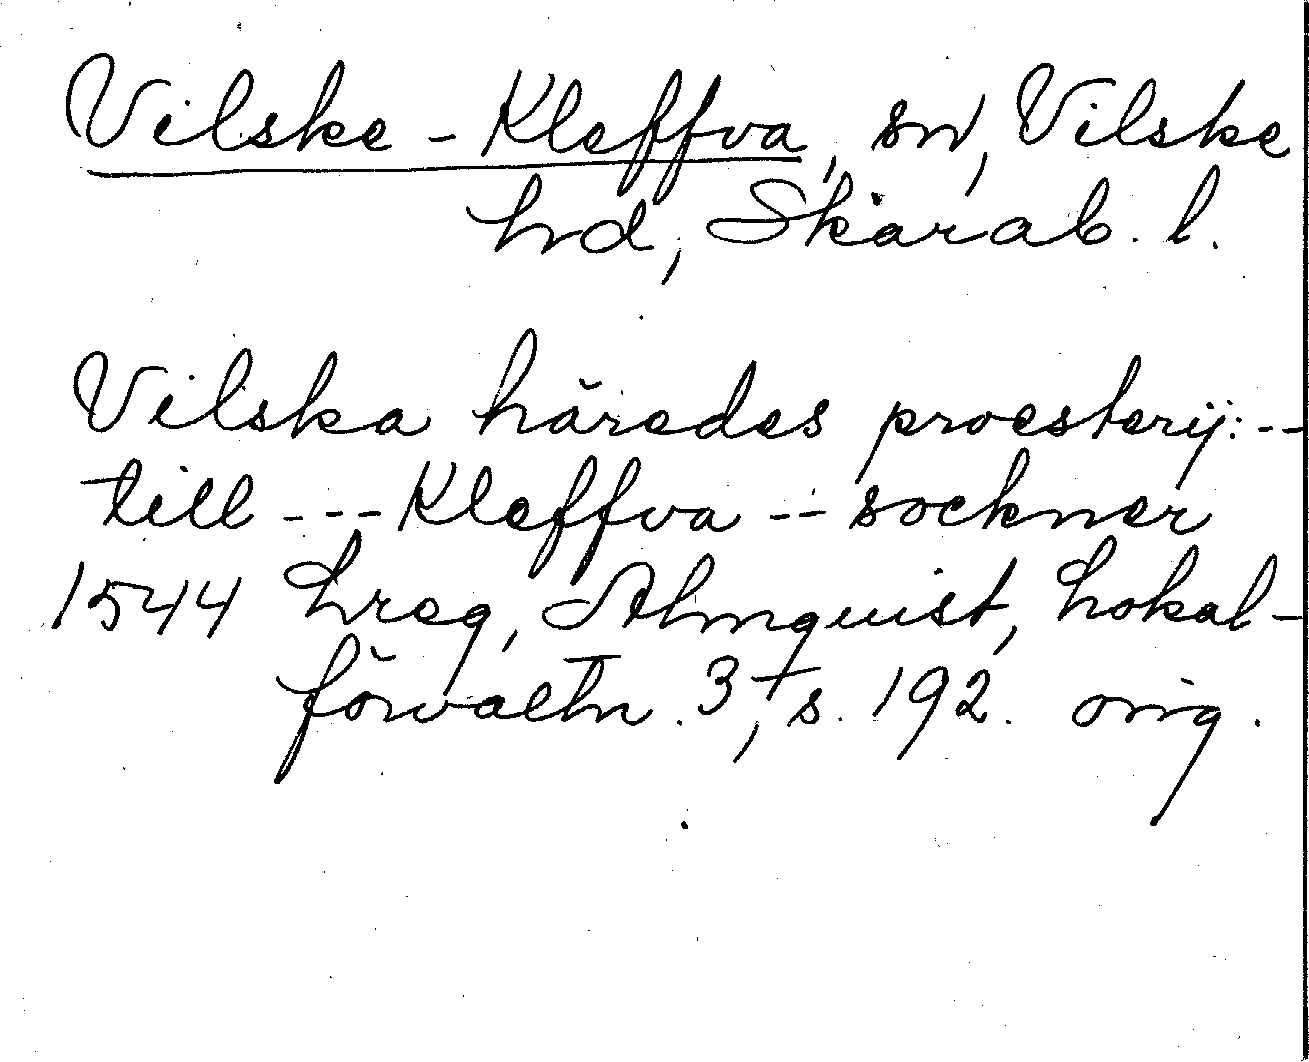 Vilske-Kleffva, sn, Vilske
hd, Skarab. l.
Vilska häredes proesterij: --
till --- Kleffva -- sockner
1544 hreg, Almquist, Lokal-
förvaltn. 3, s. 192. orig.